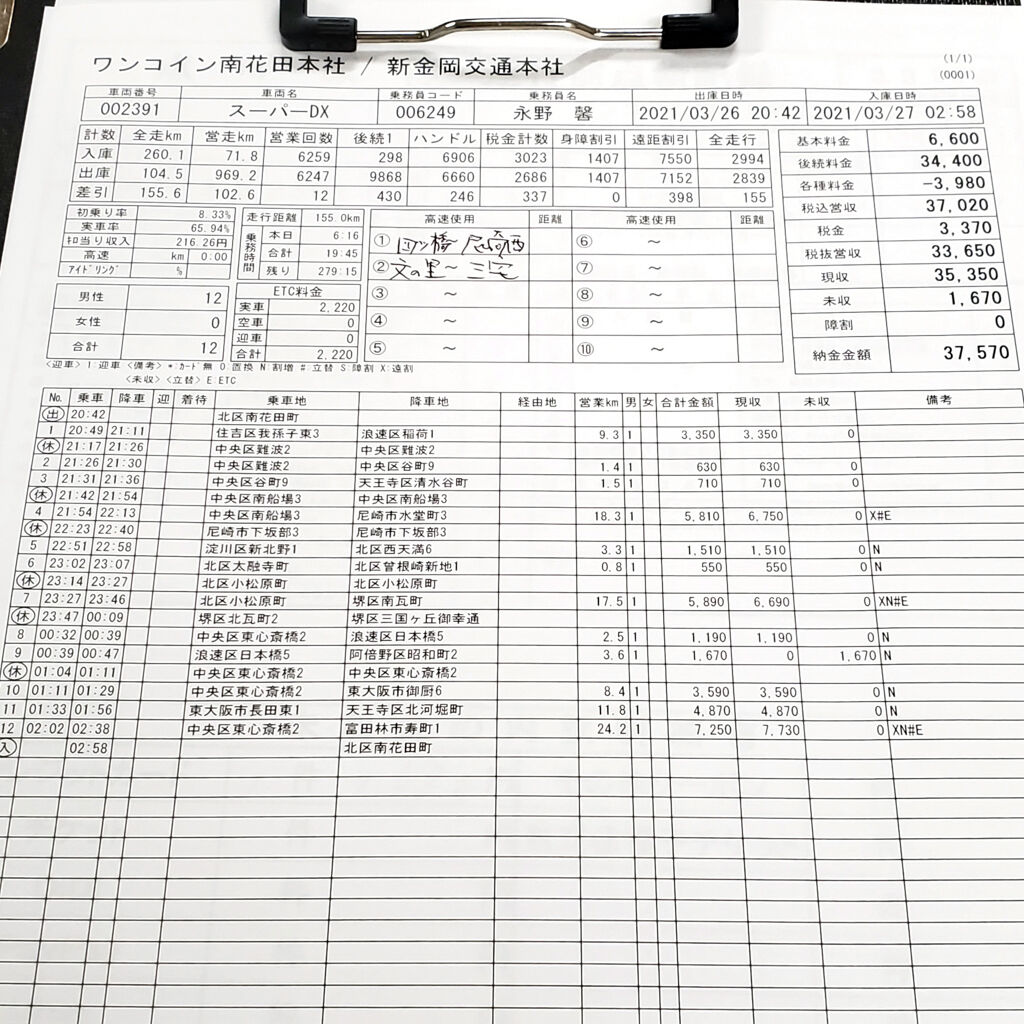 ワンコイン南花田本社 / 新金岡交通本社
(1/1)
(0001)
車両番号 車両名 乗務員コード 乗務員名 出庫日時 入庫日時
002391 スーパーDX 006249 永野 馨 2021/03/26 20:42 2021/03/27 02:58
計数 全走km 営走km 営業回数 後続1 ハンドル 税金計数 身障割引 遠距割引 全走行
入庫 260.1 71.8 6259 298 6906 3023 1407 7550 2994
出庫 104.5 969.2 6247 9868 6660 2686 1407 7152 2839
差引 155.6 102.6 12 430 246 337 0 398 155
基本料金 6,600
後続料金 34,400
各種料金 -3,980
税込営収 37,020
税金 3,370
税抜営収 33,650
現収 35,350
未収 1,670
障割 0
納金金額 37,570
初乗り率 8.33%
実車率 65.94%
キロ当り収入 216.26円
高速 km 0:00
アイドリング %
走行距離 155.0km
乗務時間 本日 6:16
合計 19:45
残り 279:15
高速使用 距離 高速使用 距離
① 四ツ橋~尼崎西 ⑥ ~
② 文の里~三宅 ⑦ ~
③ ~ ⑧ ~
④ ~ ⑨ ~
⑤ ~ ⑩ ~
男性 12
女性 0
合計 12
ETC料金
実車 2,220
空車 0
迎車 0
合計 2,220
<迎車> 1:迎車 <備考> *:カード無 O:置換 N:割増 #:立替 S:障割 X:遠割
<未収> <立替> E:ETC
No. 乗車 降車 迎 着待 乗車地 降車地 経由地 営業km 男 女 合計金額 現収 未収 備考
出 20:42 北区南花田町
1 20:49 21:11 住吉区我孫子東3 浪速区稲荷1 9.3 1 3,350 3,350 0
休 21:17 21:26 中央区難波2 中央区難波2
2 21:26 21:30 中央区難波2 中央区谷町9 1.4 1 630 630 0
3 21:31 21:36 中央区谷町9 天王寺区清水谷町 1.5 1 710 710 0
休 21:42 21:54 中央区南船場3 中央区南船場3
4 21:54 22:13 中央区南船場3 尼崎市水堂町3 18.3 1 5,810 6,750 0 X#E
休 22:23 22:40 尼崎市下坂部3 尼崎市下坂部3
5 22:51 22:58 淀川区新北野1 北区西天満6 3.3 1 1,510 1,510 0 N
6 23:02 23:07 北区太融寺町 北区曾根崎新地1 0.8 1 550 550 0 N
休 23:14 23:27 北区小松原町 北区小松原町
7 23:27 23:46 北区小松原町 堺区南瓦町 17.5 1 5,890 6,690 0 XN#E
休 23:47 00:09 堺区北瓦町2 堺区三国ヶ丘御幸通
8 00:32 00:39 中央区東心斎橋2 浪速区日本橋5 2.5 1 1,190 1,190 0 N
9 00:39 00:47 浪速区日本橋5 阿倍野区昭和町2 3.6 1 1,670 0 1,670 N
休 01:04 01:11 中央区東心斎橋2 中央区東心斎橋2
10 01:11 01:29 中央区東心斎橋2 東大阪市御厨6 8.4 1 3,590 3,590 0 N
11 01:33 01:56 東大阪市長田東1 天王寺区北河堀町 11.8 1 4,870 4,870 0 N
12 02:02 02:38 中央区東心斎橋2 富田林市寿町1 24.2 1 7,250 7,730 0 XN#E
入 02:58 北区南花田町